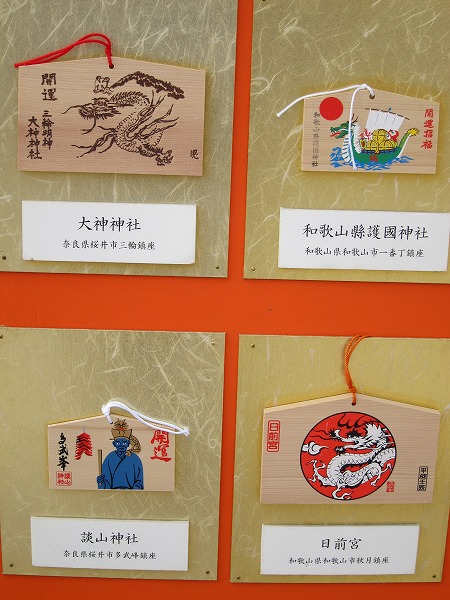 開運
三輪明神
大神神社
大神神社
奈良県桜井市三輪鎮座
和歌山県護國神社
開運招福
和歌山縣護國神社
和歌山県和歌山市一番丁鎮座
多武峯
談山神社
開運
談山神社
奈良県桜井市多武峰鎮座
日前宮
日前宮
和歌山県和歌山市秋月鎮座